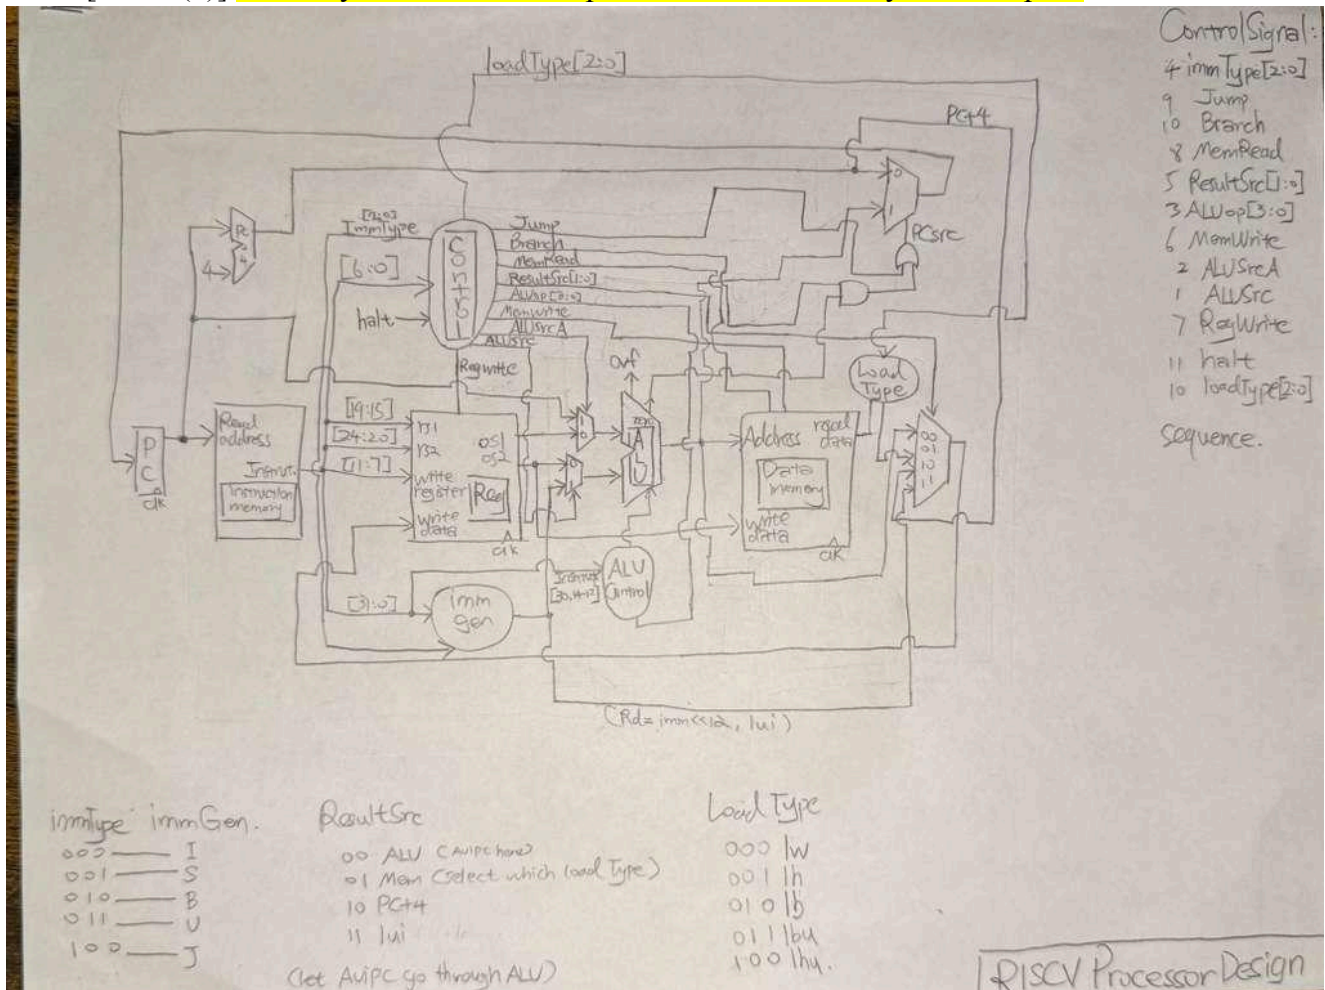 loadType[2:0]
Control Signal:
4 immType[2:0]
9 Jump
10 Branch
8 MemRead
5 ResultSrc[1:0]
3 ALUop[3:0]
6 MemWrite
2 ALUSrcA
1 ALUSrc
7 RegWrite
11 halt
10 loadType[2:0]
sequence.
PC+4
[2:0]
ImmType
Control
Jump
Branch
MemRead
ResultSrc[1:0]
MemWrite
ALUSrcA
ALUSrc
[6:0]
halt
4
0
1
PCsrc
Regwrite
ovf
Load
Type
[19:15]
[24:20]
[11:7]
Read
address
Instruction
memory
PC
clk
rs1
rs2
write
register
Reg
write
data
clk
Address
read
data
Data
memory
write
data
clk
00
01
10
11
[31:0]
imm
gen
ALU
Control
(Rd=imm<<12, lui)
immType immGen.
000 — I
001 — S
010 — B
011 — U
100 — J
ResultSrc
00 ALU (AUIPC here)
01 Mem (select which load Type)
10 PC+4
11 lui
(let AUIPC go through ALU)
Load Type
000 lw
001 lh
010 lb
011 lbu
100 lhu.
RISCV Processor Design